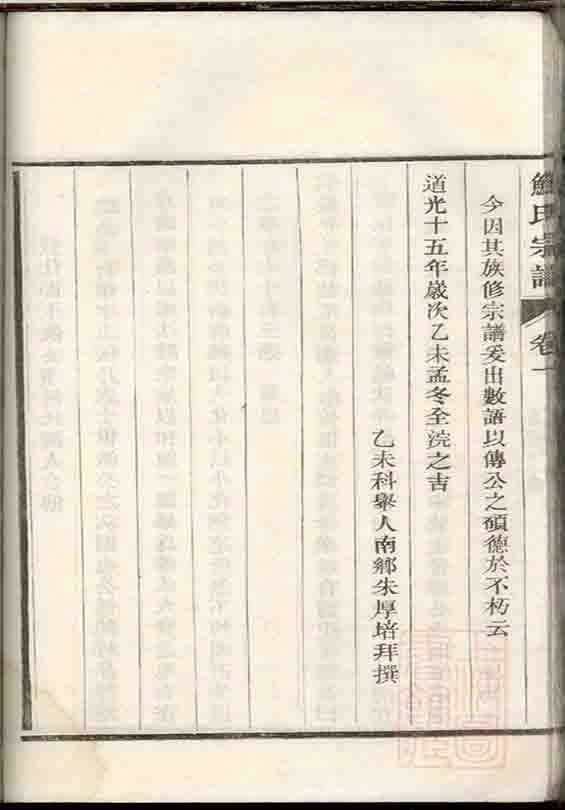 鮑氏宗譜 卷一
今因其族修宗譜爰出數語以傳公之碩德於不朽云
道光十五年歲次乙未孟冬全浣之吉
乙未科舉人南鄉朱厚培拜撰